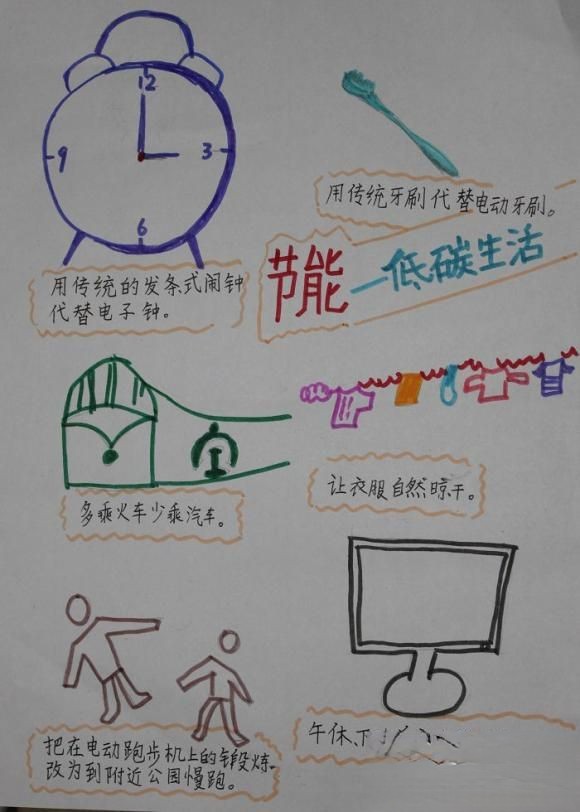 12
9
3
6
用传统的发条式闹钟
代替电子钟。
用传统牙刷代替电动牙刷。
节能—低碳生活
多乘火车少乘汽车。
让衣服自然晾干。
把在电动跑步机上的锻炼
改为到附近公园慢跑。
午休、下